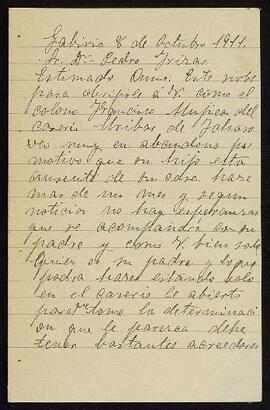 Gabiria 8 de Octubre 1911.
Sr. Dn. Pedro Irizar
Estimado Amo: Este sirbe
para dicirle á V. como el
colono Francisco Mujica del
caserio Uribas de
veo muy en abandono por
motivo que su hijo esta
ausente de su casa hase
mas de un mes y segun
noticias no hay esperanzas
que se acompañdra con su
padre y como V. bien sabe
quien es su padre y lo que
podra haser estando solo
en el caserio le abierto
para que tome la determinaci
on que le paresca debe
tener bastantes acreedores